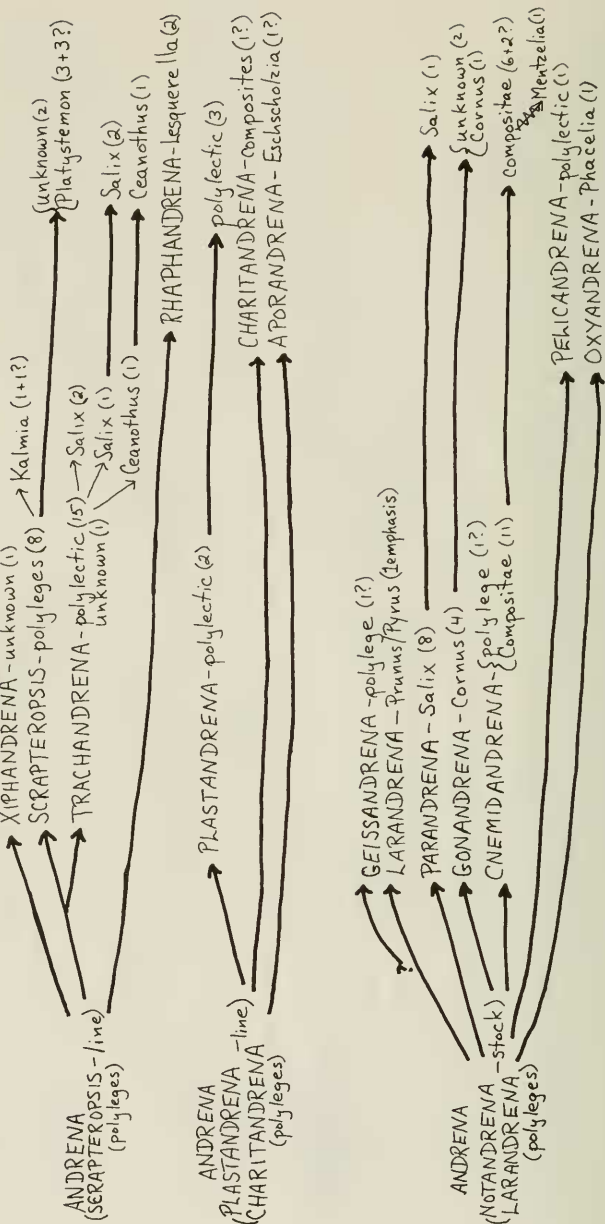 ANDRENA
(SCRAPTEROPSIS-line)
(polyleges)
XIPHANDRENA-unknown (1)
SCRAPTEROPSIS-polyleges (8)
Kalmia (1+1?)
{unknown (2)
Platystemon (3+3?)
TRACHANDRENA-polylectic (15)
unknown (1)
Salix (2)
Salix (1)
Salix (2)
Ceanothus (1)
Ceanothus (1)
RHAPHANDRENA-Lesquerella (2)
ANDRENA
(PLASTANDRENA -line)
(CHARITANDRENA
(polyleges)
PLASTANDRENA-polylectic (2)
polylectic (3)
CHARITANDRENA-composites (1?)
APORANDRENA-Eschscholzia (1?)
ANDRENA
(NOTANDRENA -stock)
(LARANDRENA
(polyleges)
?
GEISSANDRENA-polylege (1?)
LARANDRENA-Prunus/Pyrus (1emphasis)
PARANDRENA-Salix (8)
Salix (1)
GONANDRENA-Cornus (4)
{unknown (2)
Cornus (1)
CNEMIDANDRENA-{polylege (1?)
Compositae (11)
Compositae (6+2?)
Mentzelia (1)
PELICANDRENA-polylectic (1)
OXYANDRENA-Phacelia (1)